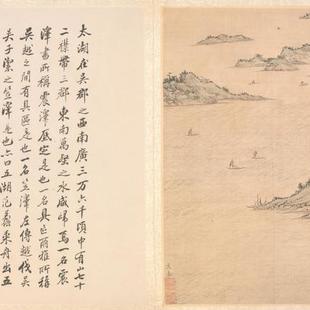 太湖在吳郡之西南廣三万六千頃中有山七十
二襟帶三郡東南萬壑之水咸歸焉一名震
澤書所稱震澤底定是也一名具區爾雅所稱
吳越之間有具區是也一名笠澤左傳越伐吳
吳子禦之笠澤是也亦曰五湖范蠡乘舟出五